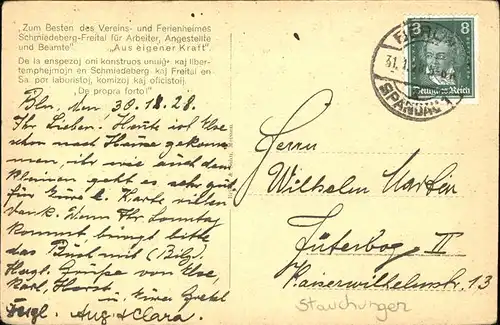 „Zum Besten des Vereins- und Ferienheimes
Schmiedeberg-Freital für Arbeiter, Angestellte
und Beamte" „Aus eigener Kraft".
De la enspezoj oni konstruos unuiĝ- kaj liber-
temphejmojn en Schmiedeberg kaj Freital en
Sa. por laboristoj, komizoj kaj oficistoj.
„De propra forto!"
Bln, den 30.12.28.
Ihr Lieben! Heute ist Else
schon nach Hause gekom
men, ihr wie auch dem
Kleinen geht es sehr gut
für Eure l. Karte vielen
Dank. Wenn Ihr Sonntag
kommt bringt bitte
das Buch mit (Bilz).
Hzgl. Grüße von Else,
Karl, Horst
u. Eurer Gretel
Aug + Clara.
8 8
Deutsches Reich
SPANDAU 1
Herrn
Wilhelm Martin
Jüterbog II
Kaiserwilhelmstr. 13
Stauchungen